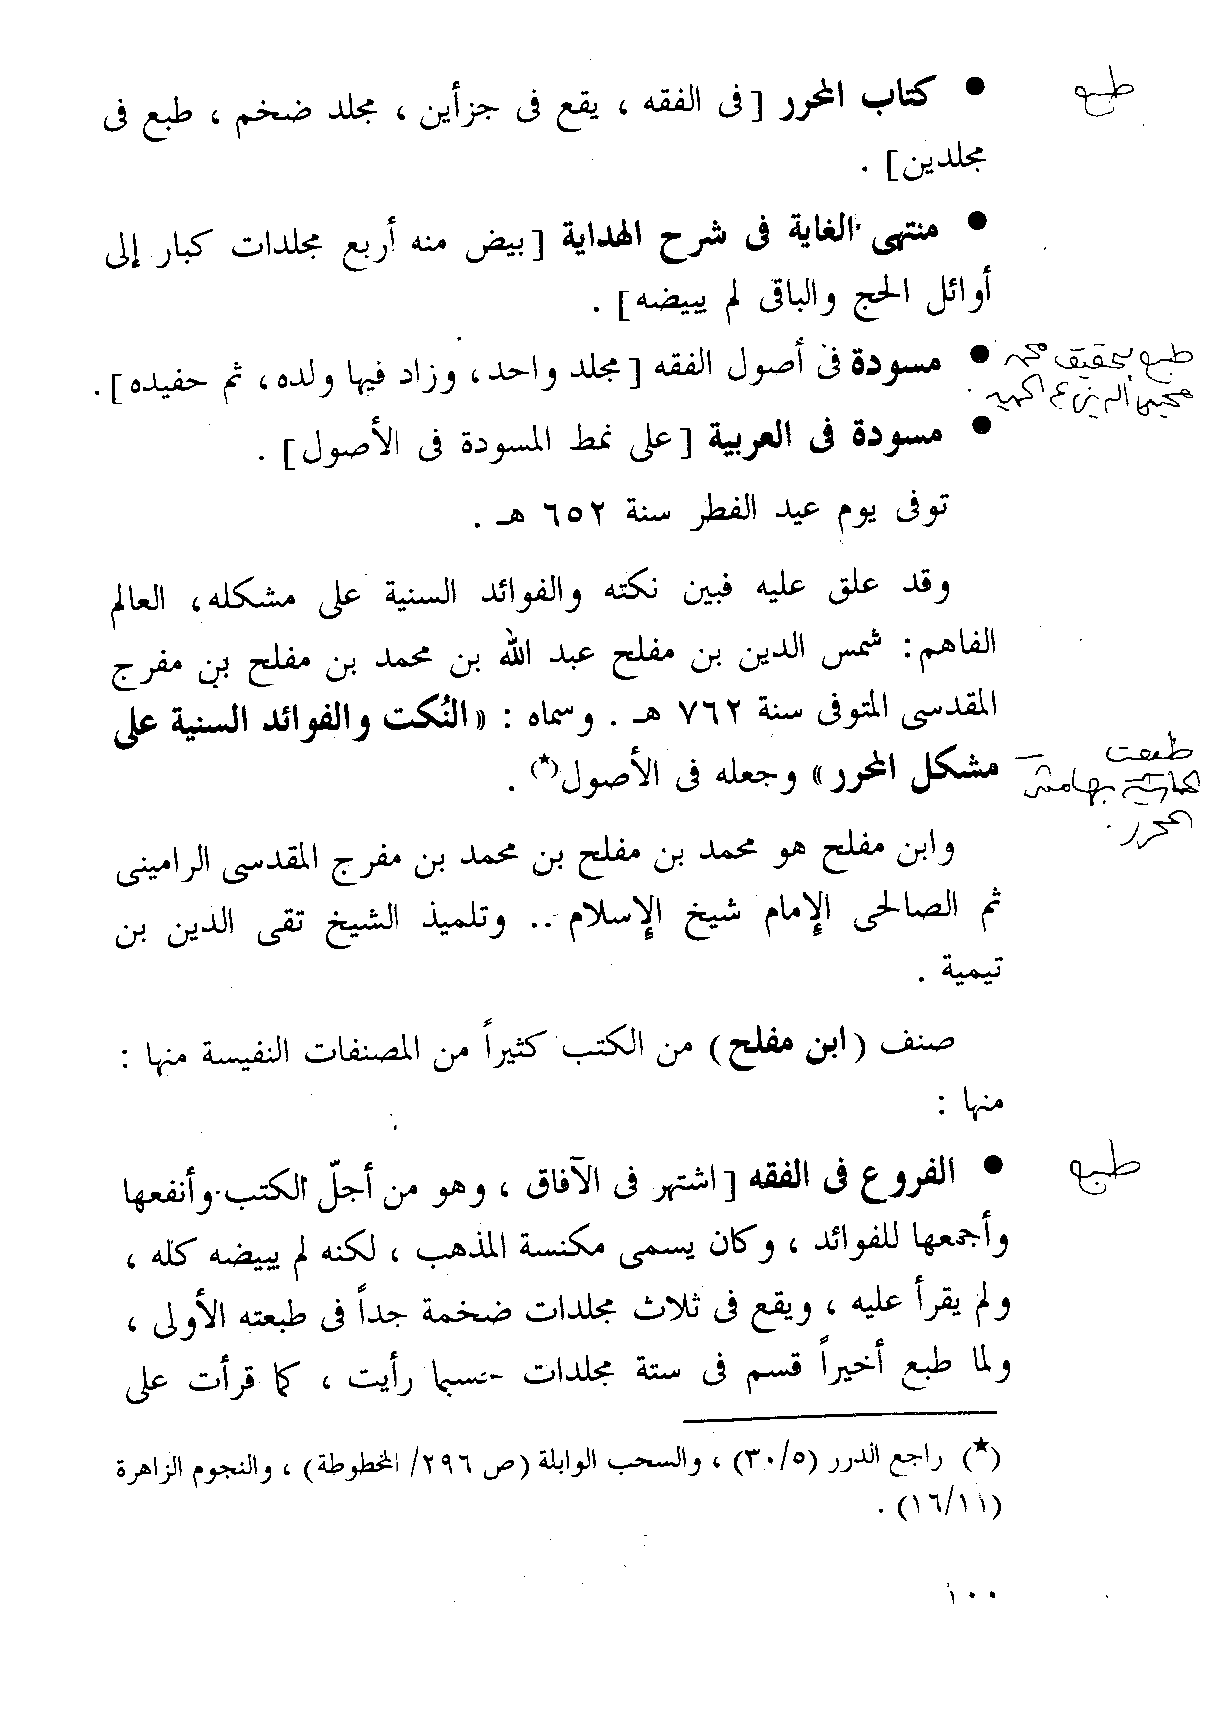 طبع
● كتاب المحرر [فى الفقه ، يقع فى جزأين ، مجلد ضخم ، طبع فى
مجلدين] .
● منتهى الغاية فى شرح الهداية [بيض منه أربع مجلدات كبار إلى
أوائل الحج والباقى لم يبيضه] .
طبع بتحقيق محمد
محيى الدين عبد الحميد
● مسودة فى أصول الفقه [مجلد واحد، وزاد فيها ولده، ثم حفيده].
● مسودة فى العربية [على نمط المسودة فى الأصول] .
توفى يوم عيد الفطر سنة ٦٥٢ هـ .
وقد علق عليه فبين نكته والفوائد السنية على مشكله، العالم
الفاهم: شمس الدين بن مفلح عبد الله بن محمد بن مفلح بن مفرج
المقدسى المتوفى سنة ٧٦٢ هـ . وسماه : «النُكت والفوائد السنية على
مشكل المحرر» وجعله فى الأصول(*) .
طبعت
بهامش
المحرر .
وابن مفلح هو محمد بن مفلح بن محمد بن مفرج المقدسى الرامينى
ثم الصالحى الإمام شيخ الإسلام .. وتلميذ الشيخ تقى الدين بن
تيمية .
صنف (ابن مفلح) من الكتب كثيراً من المصنفات النفيسة منها :
منها :
طبع
● الفروع فى الفقه [اشتهر فى الآفاق ، وهو من أجلّ الكتب وأنفعها
وأجمعها للفوائد ، وكان يسمى مكنسة المذهب ، لكنه لم يبيضه كله ،
ولم يقرأ عليه ، ويقع فى ثلاث مجلدات ضخمة جداً فى طبعته الأولى ،
ولما طبع أخيراً قسم فى ستة مجلدات حسبما رأيت ، كما قرأت على
(*) راجع الدرر (٣٠/٥) ، والسحب الوابلة (ص ٢٩٦/ المخطوطة) ، والنجوم الزاهرة
(١٦/١١) .
١٠٠